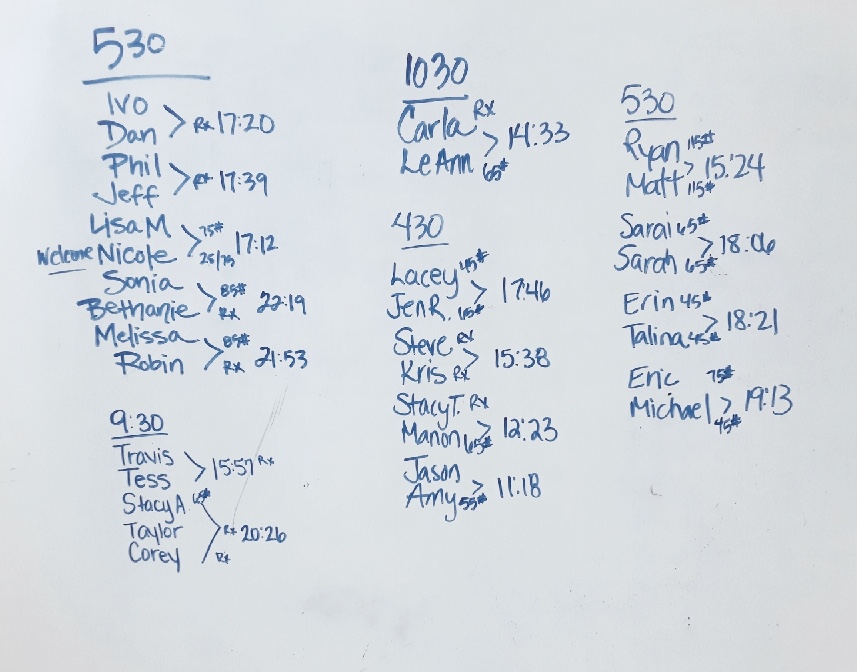 530
Ivo
Dan > Rx 17:20
Phil
Jeff > Rx 17:39
Lisa M 75#
Welcome Nicole > 25/75 17:12
Sonia 85#
Bethanie > Rx 22:19
Melissa 85#
Robin > Rx 21:53
9:30
Travis
Tess > 15:57 Rx
Stacy A 65#
Taylor Rx 20:26
Corey Rx
1030
Carla Rx
LeAnn 65# > 14:33
430
Lacey 45#
Jen R. > 17:46
Steve Rx
Kris Rx > 15:38
Stacy T. Rx
Manon 65# > 12:23
Jason
Amy 55# > 11:18
530
Ryan 115#
Matt 115# > 15:24
Sarai 65#
Sarah 65# > 18:06
Erin 45#
Talina 45# > 18:21
Eric 75#
Michael 45# > 19:13